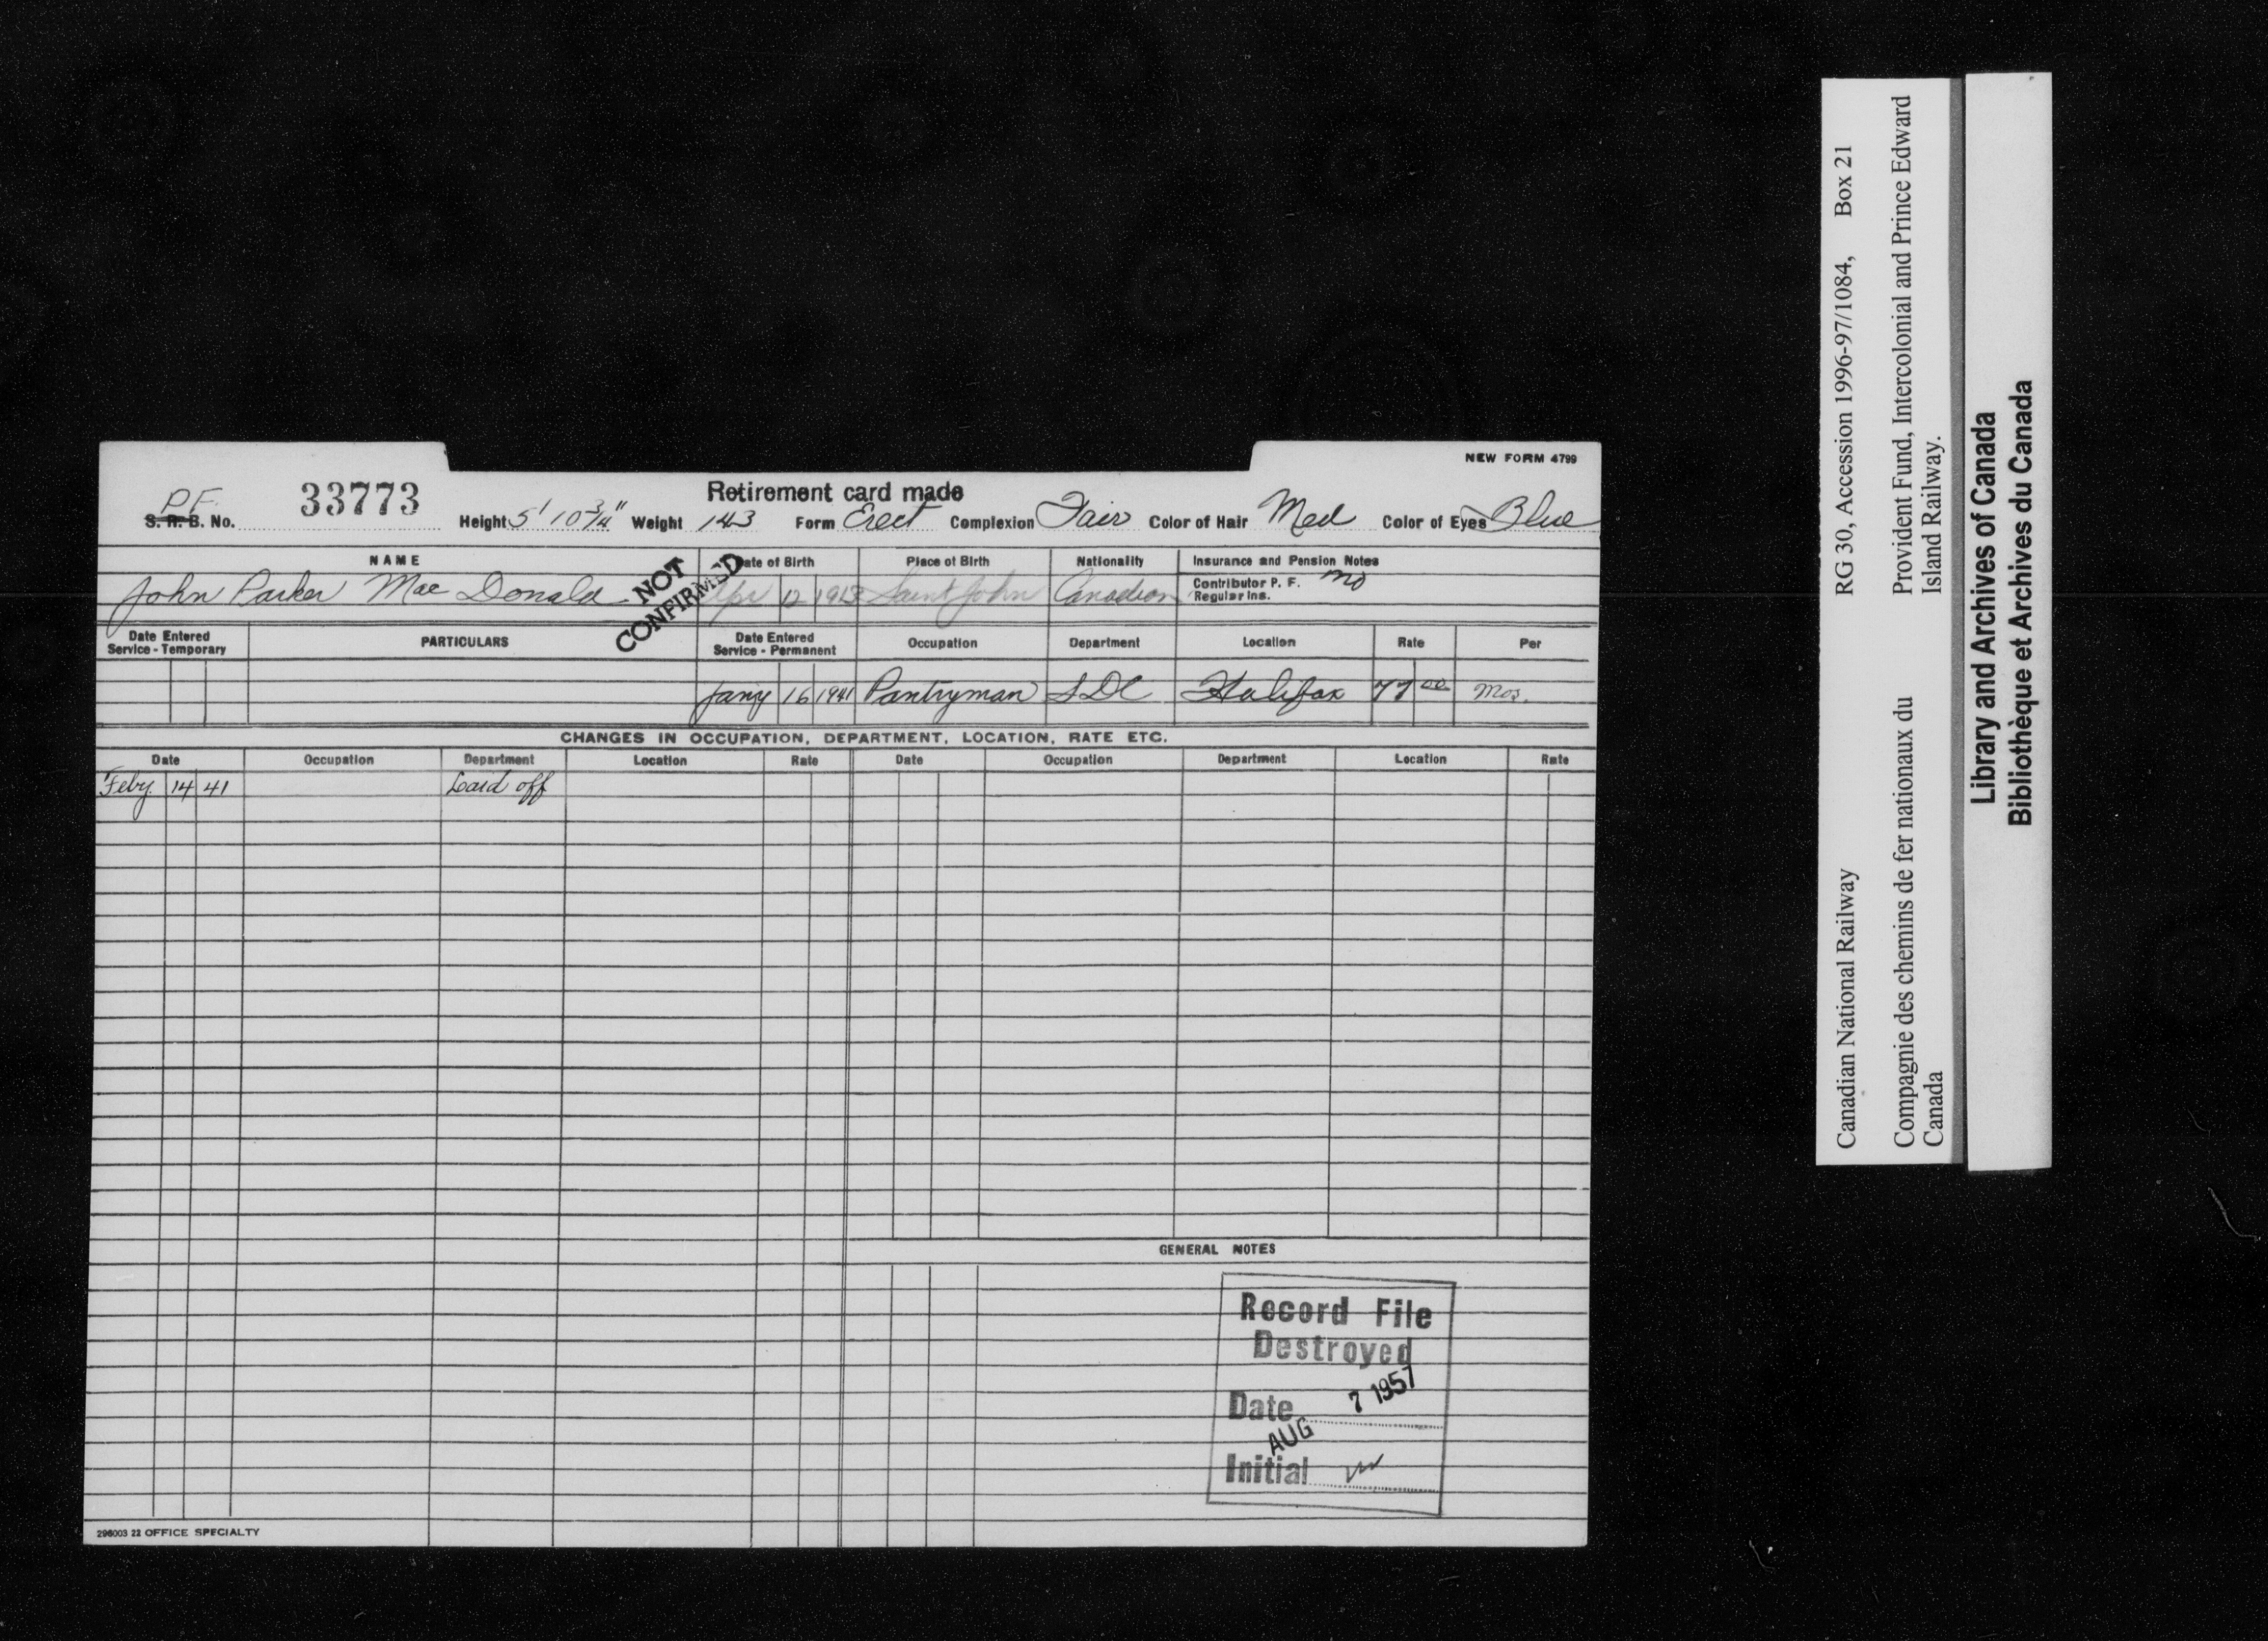 NEW FORM 4799
Retirement card made
P.F.
S. R. B. No. 33773 Height 5' 10 3/4" Weight 143 Form Erect Complexion Fair Color of Hair Med Color of Eyes Blue
NAME Date of Birth Place of Birth Nationality Insurance and Pension Notes
John Parker Mac Donald 12 Saint John Canadian Contributor P. F. no
Regular Ins.
NOT
CONFIRMED
Date Entered Service - Temporary PARTICULARS Date Entered Service - Permanent Occupation Department Location Rate Per
Jany 16 1941 Pantryman SDC Halifax 77 00 Mos.
CHANGES IN OCCUPATION, DEPARTMENT, LOCATION, RATE ETC.
Date Occupation Department Location Rate Date Occupation Department Location Rate
Feby. 14 41 Laid off
GENERAL NOTES
Record File
Destroyed
Date AUG 7 1957
Initial
296003 22 OFFICE SPECIALTY
Canadian National Railway RG 30, Accession 1996-97/1084, Box 21
Compagnie des chemins de fer nationaux du Provident Fund, Intercolonial and Prince Edward
Canada Island Railway.
Library and Archives of Canada
Bibliothèque et Archives du Canada